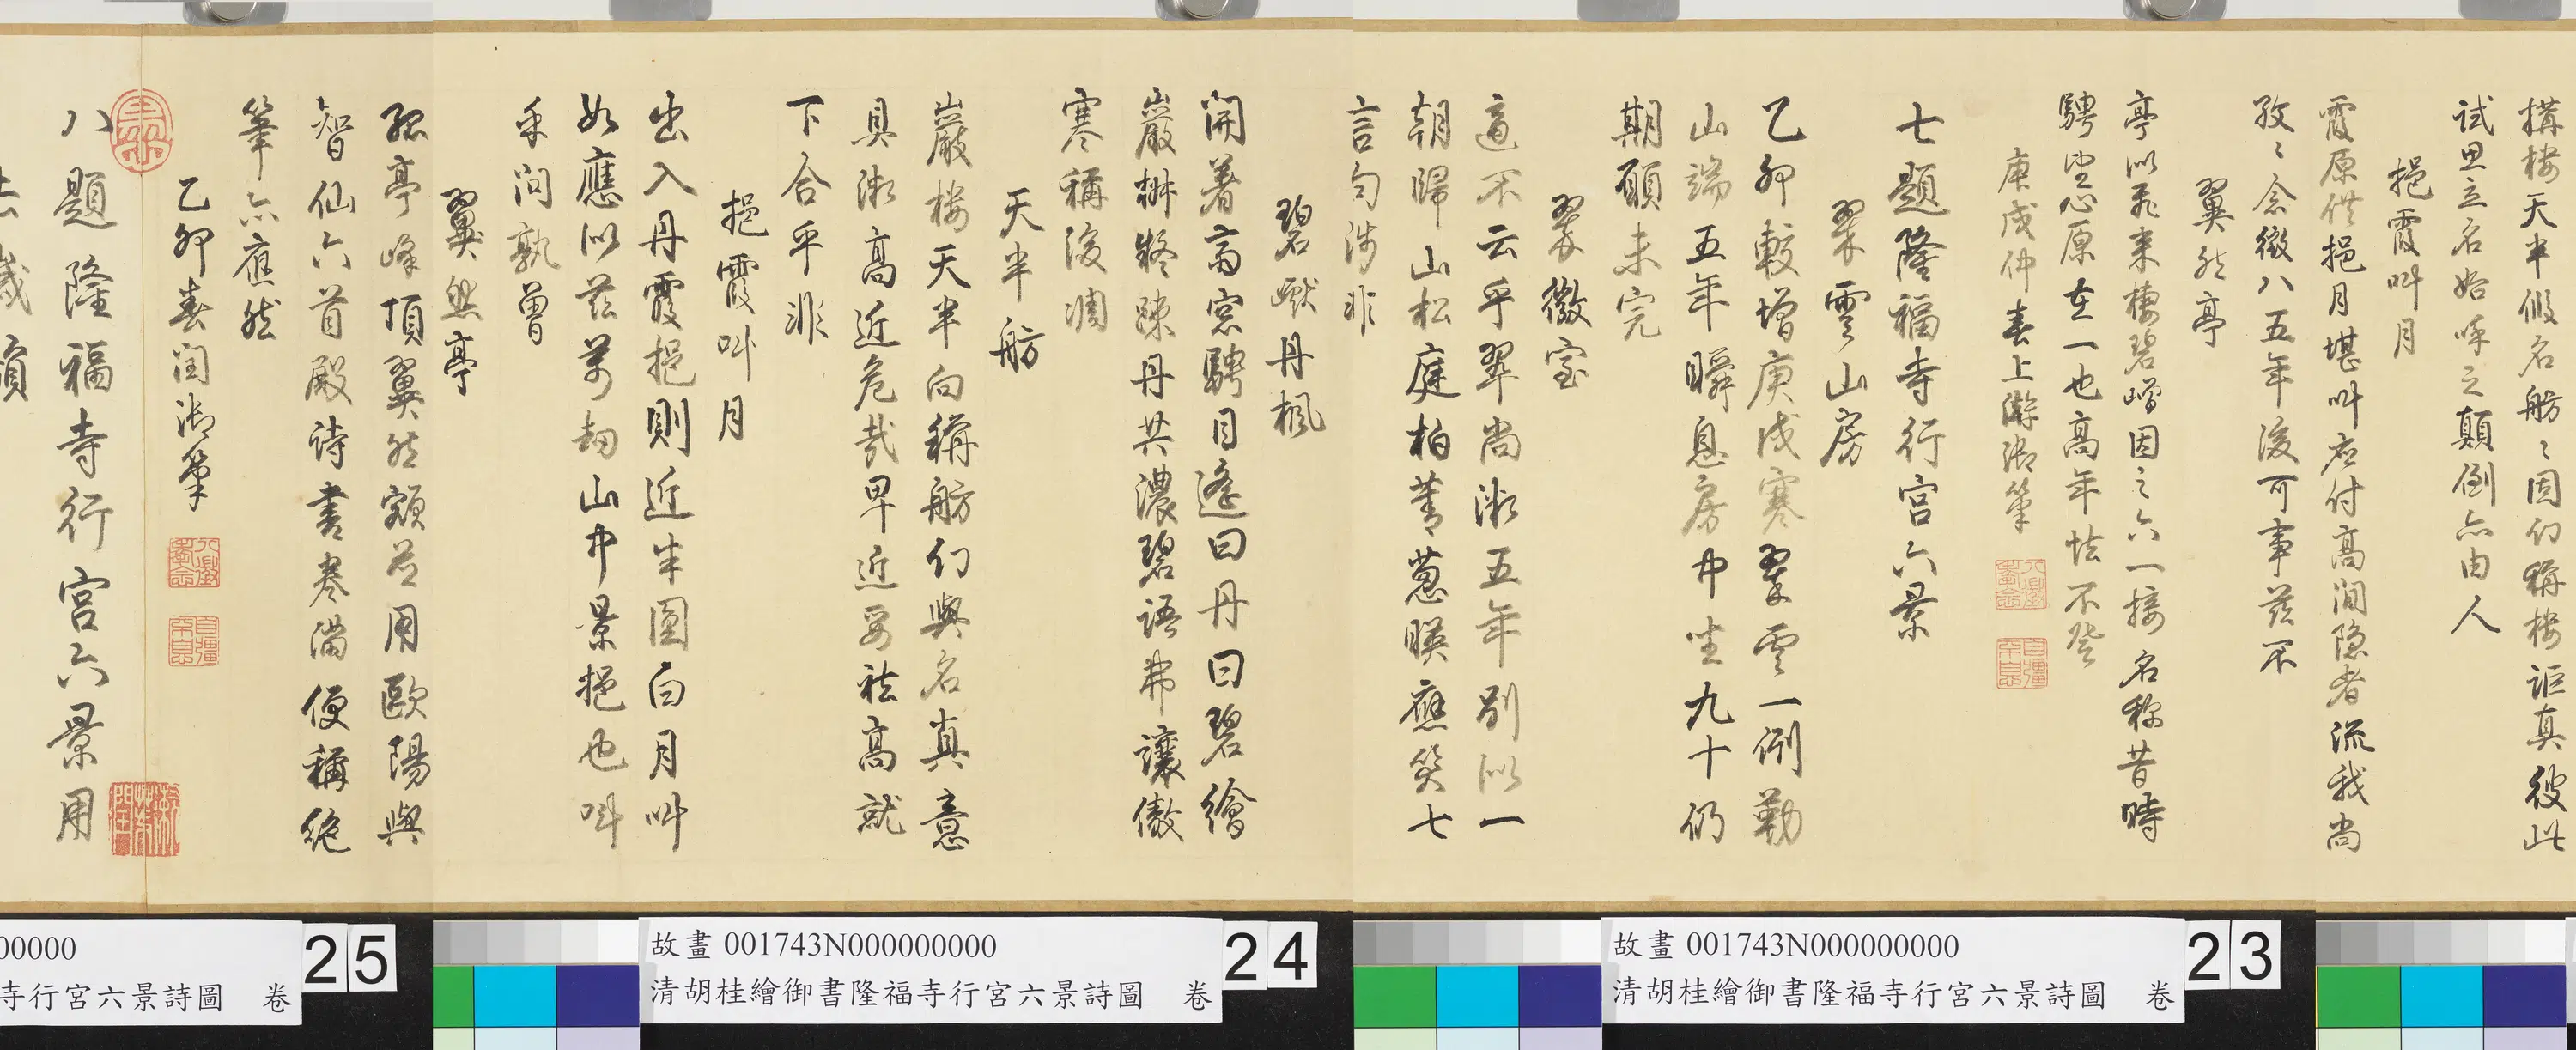 搆樓天半假名舫〻因仍稱樓詎真彼此
試思立名始呼之顛倒亦由人
挹霞叫月
霞原供挹月堪叫應付高閒隱者流我尚
孜〻念徵八五年後可事茲不
翼然亭
亭以飛來棲碧嶒因之六一接名稱昔時
騁望心原在一也高年怯不登
庚戌仲春上澣御筆
七題隆福寺行宮六景
翠雲山房
乙卯較增庚戌寒翠雲一例勒
山端五年瞬息房中坐九十仍
期願未完
翠微室
適不云乎翠尚微五年別以一
朝歸山松庭柏菁蔥暎應笑七
言句涉非
碧巘丹楓
開著高窓騁目遙曰丹曰碧繪
巖椒凝疎丹共濃碧語弗讓傲
寒稱後凋
天半舫
巖樓天半向稱舫仍與名真意
具微高近危哉卑近妥祛高就
下合乎非
挹霞叫月
出入丹霞挹則近半圓白月叫
如應以茲萬劫山中景挹也叫
乎問孰曾
翼然亭
孤亭峰頂翼然額若用歐陽與
智仙六六首殿詩書卷滿便稱絕
筆亦應然
乙卯春閏御筆
八題隆福寺行宮六景用
去歲韻
故畫 001743N000000000
清胡桂繪御書隆福寺行宮六景詩圖 卷
23
故畫 001743N000000000
清胡桂繪御書隆福寺行宮六景詩圖 卷
24
00000
寺行宮六景詩圖 卷
25